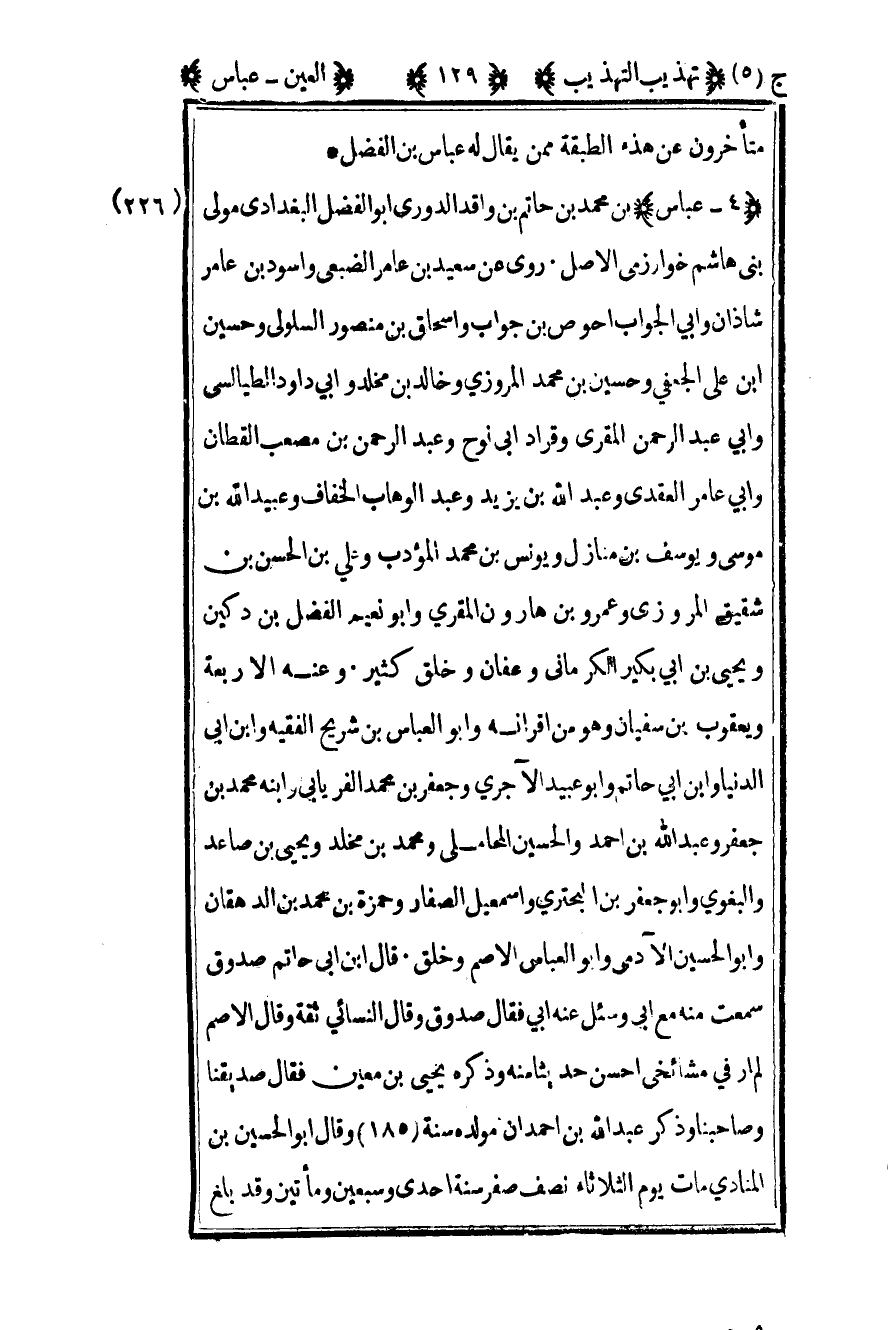 ج (٥) ﴿ تهذيب التهذيب ﴾ ﴿ ١٢٩ ﴾ ﴿ العين ـ عباس ﴾
متأخرون عن هذه الطبقة ممن يقال له عباس بن الفضل •
﴿ ٤ ـ عباس ﴾ بن محمد بن حاتم بن واقد الدورى ابو الفضل البغدادى مولى (٢٢٦)
بنى هاشم خوارزمى الاصل • روى عن سعيد بن عامر الضبعى واسود بن عامر
شاذان وابي الجواب احوص بن جواب واسحاق بن منصور السلولى وحسين
ابن على الجعفي وحسين بن محمد المروزي وخالد بن مخلد و ابي داود الطيالسى
وابي عبد الرحمن المقرى وقراد ابى نوح وعبد الرحمن بن مصعب القطان
وابي عامر العقدى وعبد الله بن يزيد وعبد الوهاب الخفاف وعبيد الله بن
موسى و يوسف بن منازل و يونس بن محمد المؤدب وعلي بن الحسن بن
شقيق المروزى وعمرو بن هارون المقري وابو نعيم الفضل بن دكين
و يحيى بن ابي بكير الكرمانى و عفان و خلق كثير • و عنه الاربعة
ويعقوب بن سفيان وهو من اقرانه وابو العباس بن شريح الفقيه وابن ابي
الدنيا وابن ابي حاتم وابو عبيد الآجري وجعفر بن محمد الفريابي رابنه محمد بن
جعفر وعبد الله بن احمد والحسين المحاملى ومحمد بن مخلد ويحيى بن صاعد
والبغوي وابو جعفر بن البحتري واسمعيل الصفار وحمزة بن محمد بن الدهقان
وابو الحسين الآدمى وابو العباس الاصم وخلق • قال ابن ابى حاتم صدوق
سمعت منه مع ابى وسئل عنه ابي فقال صدوق وقال النسائي ثقة وقال الاصم
لم ار في مشائخى احسن حديثا منه وذكره يحيى بن معين فقال صديقنا
وصاحبنا وذكر عبد الله بن احمد ان مولده سنة (١٨٥) وقال ابو الحسين بن
المنادي مات يوم الثلاثاء نصف صفر سنة احدى وسبعين ومأتين وقد بلغ